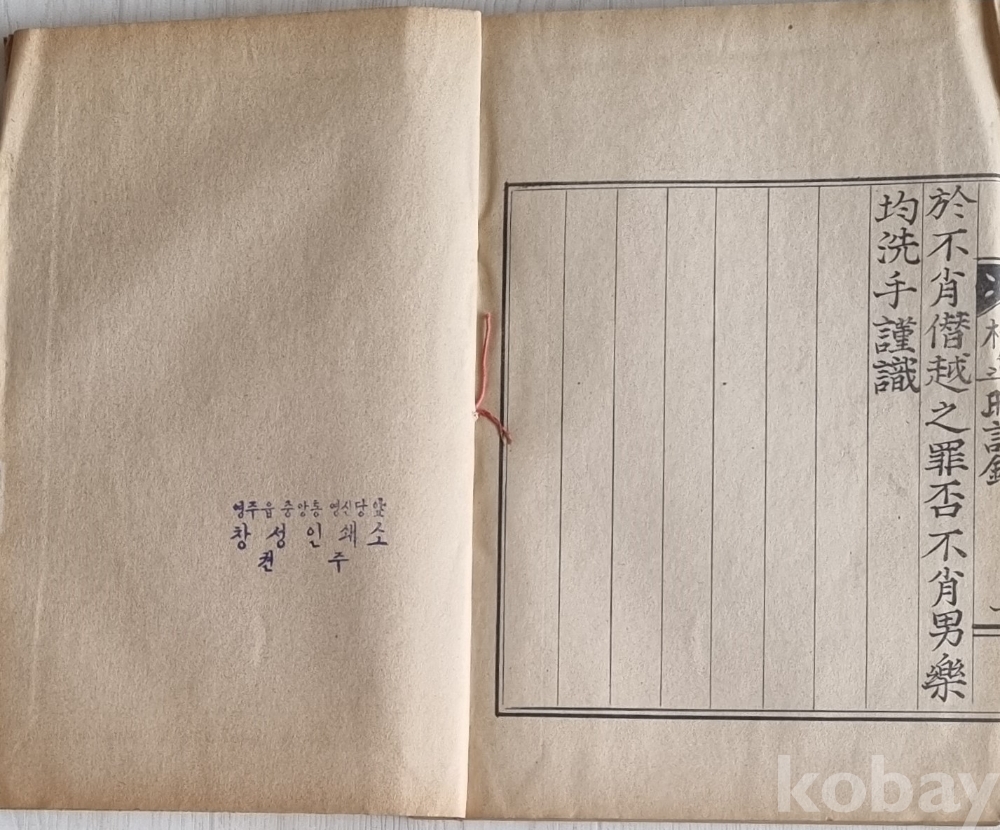 於不肖僭越之罪否不肖男樂
均洗手謹識
영주읍 중앙통 영신당 앞
창성인쇄소
권 주
kobay